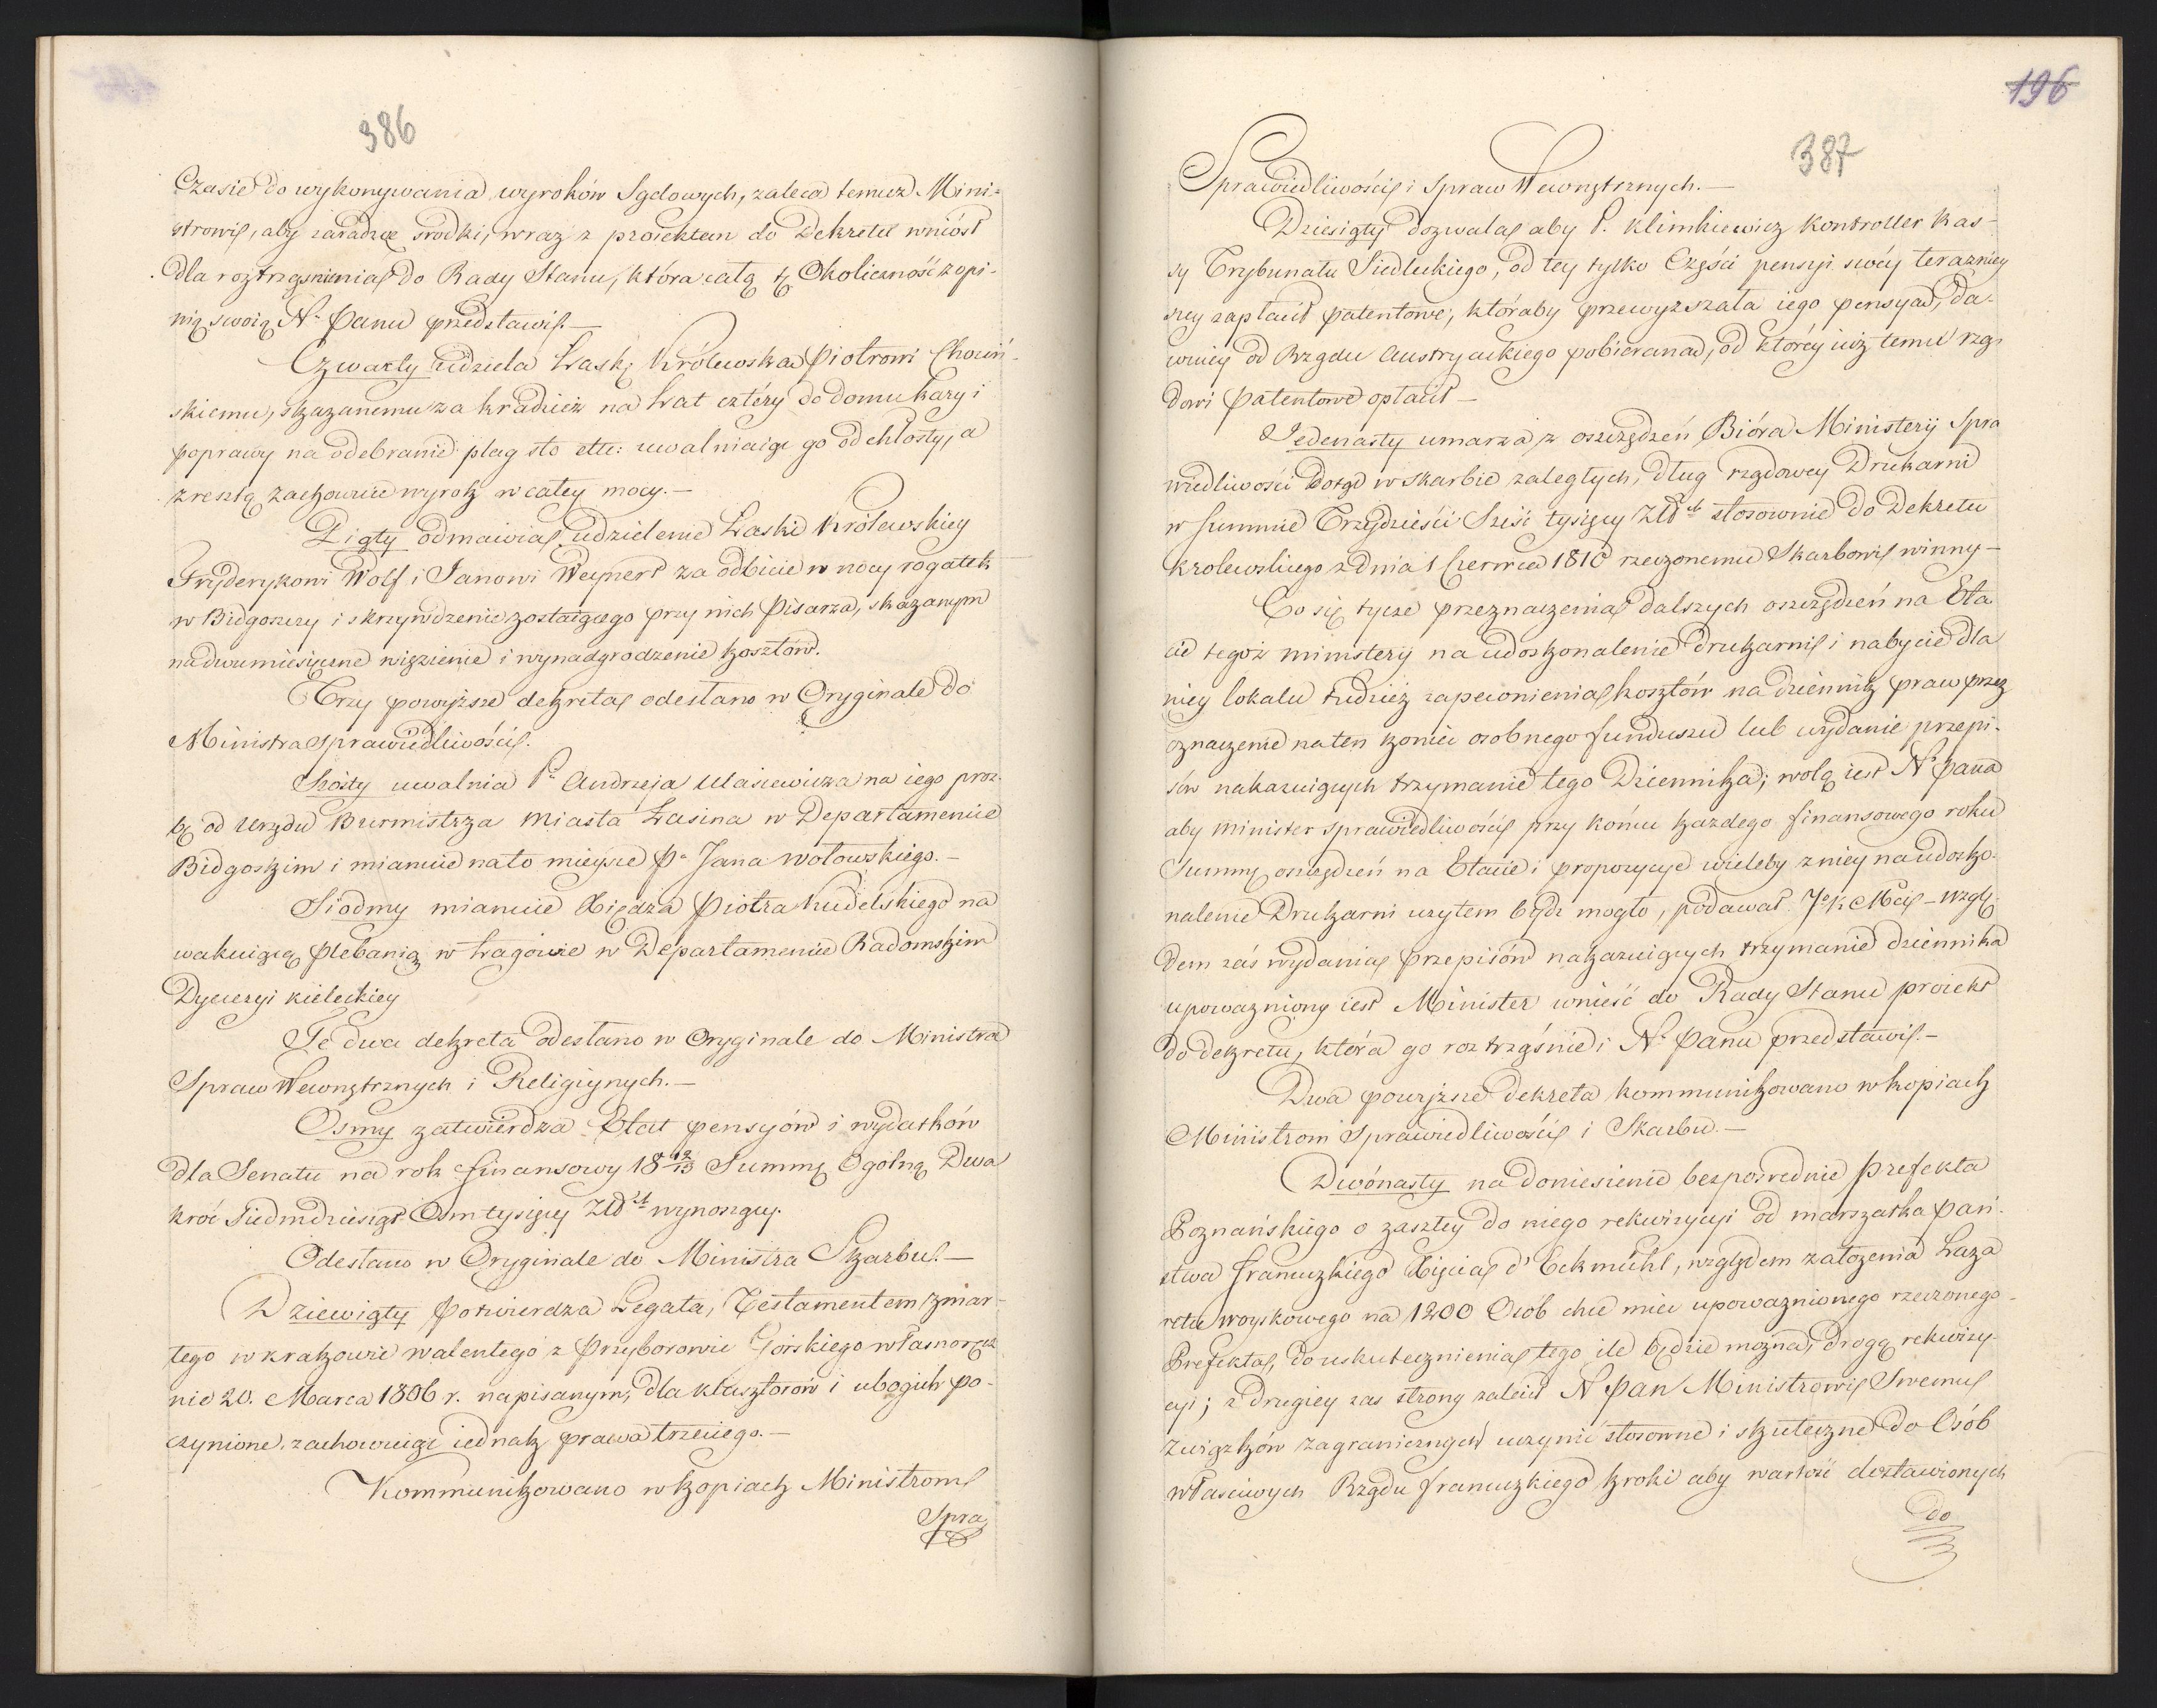 386
Czasie do wykonywania wyroków Sądowych, zaleca temuż Mini-
strowi, aby zaradcze srodki, wraz z proiektem do Dekretu wniósł
dla roztrząśnienia do Rady Stanu, która całą tę Okoliczność z opi-
nią swoią N. Panu przedstawi.—
Czwarty udziela Łaskę Królewska Piotrowi Chowiń-
skiemu, skazanemu za kradzież na Lat cztéry do domu kary i
poprawy na odebranie plag sto etc: uwalniaiąc go od chłosty, a
zresztą zachowuie wyrok w całey mocy.—
Piąty odmawia udzielenie Łaski Królewskiey
Fryderykowi Wolf i Janowi Weynert za odbicie w nocy rogatek
w Bidgoszczy i skrzywdzenie zostaiącego przy nich Pisarza, skazanym
na dwumiesięczne więzienie i wynadgrodzenie kosztów.
Trzy powyższe dekreta odesłano w Oryginale do
Ministra Sprawiedliwości.
Szósty uwalnia P. Andrzeja Ulasiewicza na iego proź-
bę od Urzędu Burmistrza Miasta Łasina w Departamencie
Bidgoskim i mianuie na to mieysce P. Jana Wołowskiego.—
Siodmy mianuie Xiędza Piotra Kudelskiego na
wakuiącą Plebanią w Łagowie w Departamencie Radomskim
Dyecezyi kieleckiey
Te dwa dekreta odesłano w Oryginale do Ministra
Spraw Wewnętrznych i Religiynych.—
Osmy zatwierdza Etat pensyów i wydatków
dla Senatu na rok finansowy 18 12/13 Summę Ogólną Dwa
kroć Siedmdziesiąt Osm tysięcy Złł wynoszący.
Odesłano w Oryginale do Ministra Skarbu.—
Dziewiąty potwierdza Legata, Testamentem zmar-
łego w Krakowie Walentego z Przyborowie Górskiego własnoręcz
nie 20. Marca 1806 r. napisanym, dla klasztorów i ubogich po-
czynione, zachowuiąc iednak prawa trzeciego.—
Kommunikowano w kopiach Ministrom
Spra
196
387
Sprawiedliwości i Spraw Wewnętrznych.—
Dziesiąty dozwala aby P. Klimkiewicz Kontroller Kas-
sy Trybunału Siedleckiego, od tey tylko Części pensyi swéy terazniey
szey zapłacił patentowe, któraby przewyższała iego pensyą, da-
wniey od Rządu Austryackiego pobieraną, od któréy iuż temu rzą
dowi Patentowe opłacił—
Jedenasty umarza z oszczędzeń Bióra Ministerij Spra
wiedliwości dotąd w Skarbie zaległych, dług rządowey Drukarni
w Summie Trzydzieści Sześć tysięcy Złł stosownie do Dekretu
krolewskiego z dnia 1 Czerwca 1810 rzeczonemu Skarbowi winny—
Co się tycze przeznaczenia dalszych oszczędzeń na Eta
cie tegoż ministerij na udoskonalenie drukarni i nabycie dla
niey lokalu tudzież zapewnienia kosztów na dziennik praw przez
oznaczenie na ten koniec osobnego funduszu lub wydanie przepi-
sów nakazuiących trzymanie tego Dziennika; wolą iest N. Pana
aby minister Sprawiedliwości przy końcu kazdego finansowego roku
Summę oszczędzeń na Etacie i propozycye wieleby z niey na udosko-
nalenie Drukarni uzytem bydz mogło, podawał J. K. Mci—wzglę
dem zaś wydania przepisów nakazuiących trzymanie dziennika
upowazniony iest Minister wnieść do Rady Stanu proiekt
do dekretu, która go roztrząśnie i N. Panu przedstawi.—
Dwa powyższe dekreta kommunikowano w kopiach
Ministrom Sprawiedliwości i Skarbu.—
Dwónasty na doniesienie bezpośrednie Prefekta
Poznańskiego o zaszłey do niego rekwizycyi od marszałka Pań-
stwa francuzkiego Xięcia d'Eckmühl, względem założenia Laza
retu woyskowego na 1200 Osób chce mieć upowaznionego rzeczonego
Prefekta, do uskutecznienia tego ile będzie można, drogą rekwizy-
cyi; z drugiey zas strony zalecił N Pan Ministrowi Swemu
Związków zagranicznych uczynić stosowne i skuteczne do Osób
właściwych Rządu francuzkiego kroki aby wartość dostawionych
do